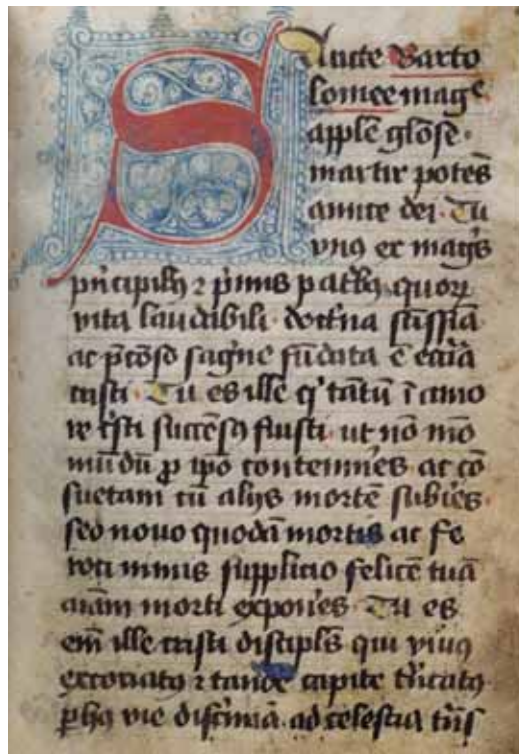 Sancte Barto
lomee mag^e
appl̄e gl̄ose
martir potēs
amice dei. Tu
vnus ex maḡs
p̄ncipibꝫ ⁊ p̄mis patribꝫ quoꝝ
vita laudabili doct̄na sc̄issīa
ac p̄c̄oso sagne fūdata ē ecc̄ia
cristi. Tu es ille q̄ tātū ī amo
re cristi succēsꝰ fuisti. ut nō mō
mūdū ꝓ ip̄o contemneres ac cō
suetam cū alijs mortē subires
sed nouo quodā mortis ac fe
roci nimis supplicio felicē tuā
aīam morti exponeres. Tu es
em̄ ille cristi discipl̄s qui viuꝰ
excoriatꝰ ⁊ tandē capite t̄ncatꝰ
vie ad celestia